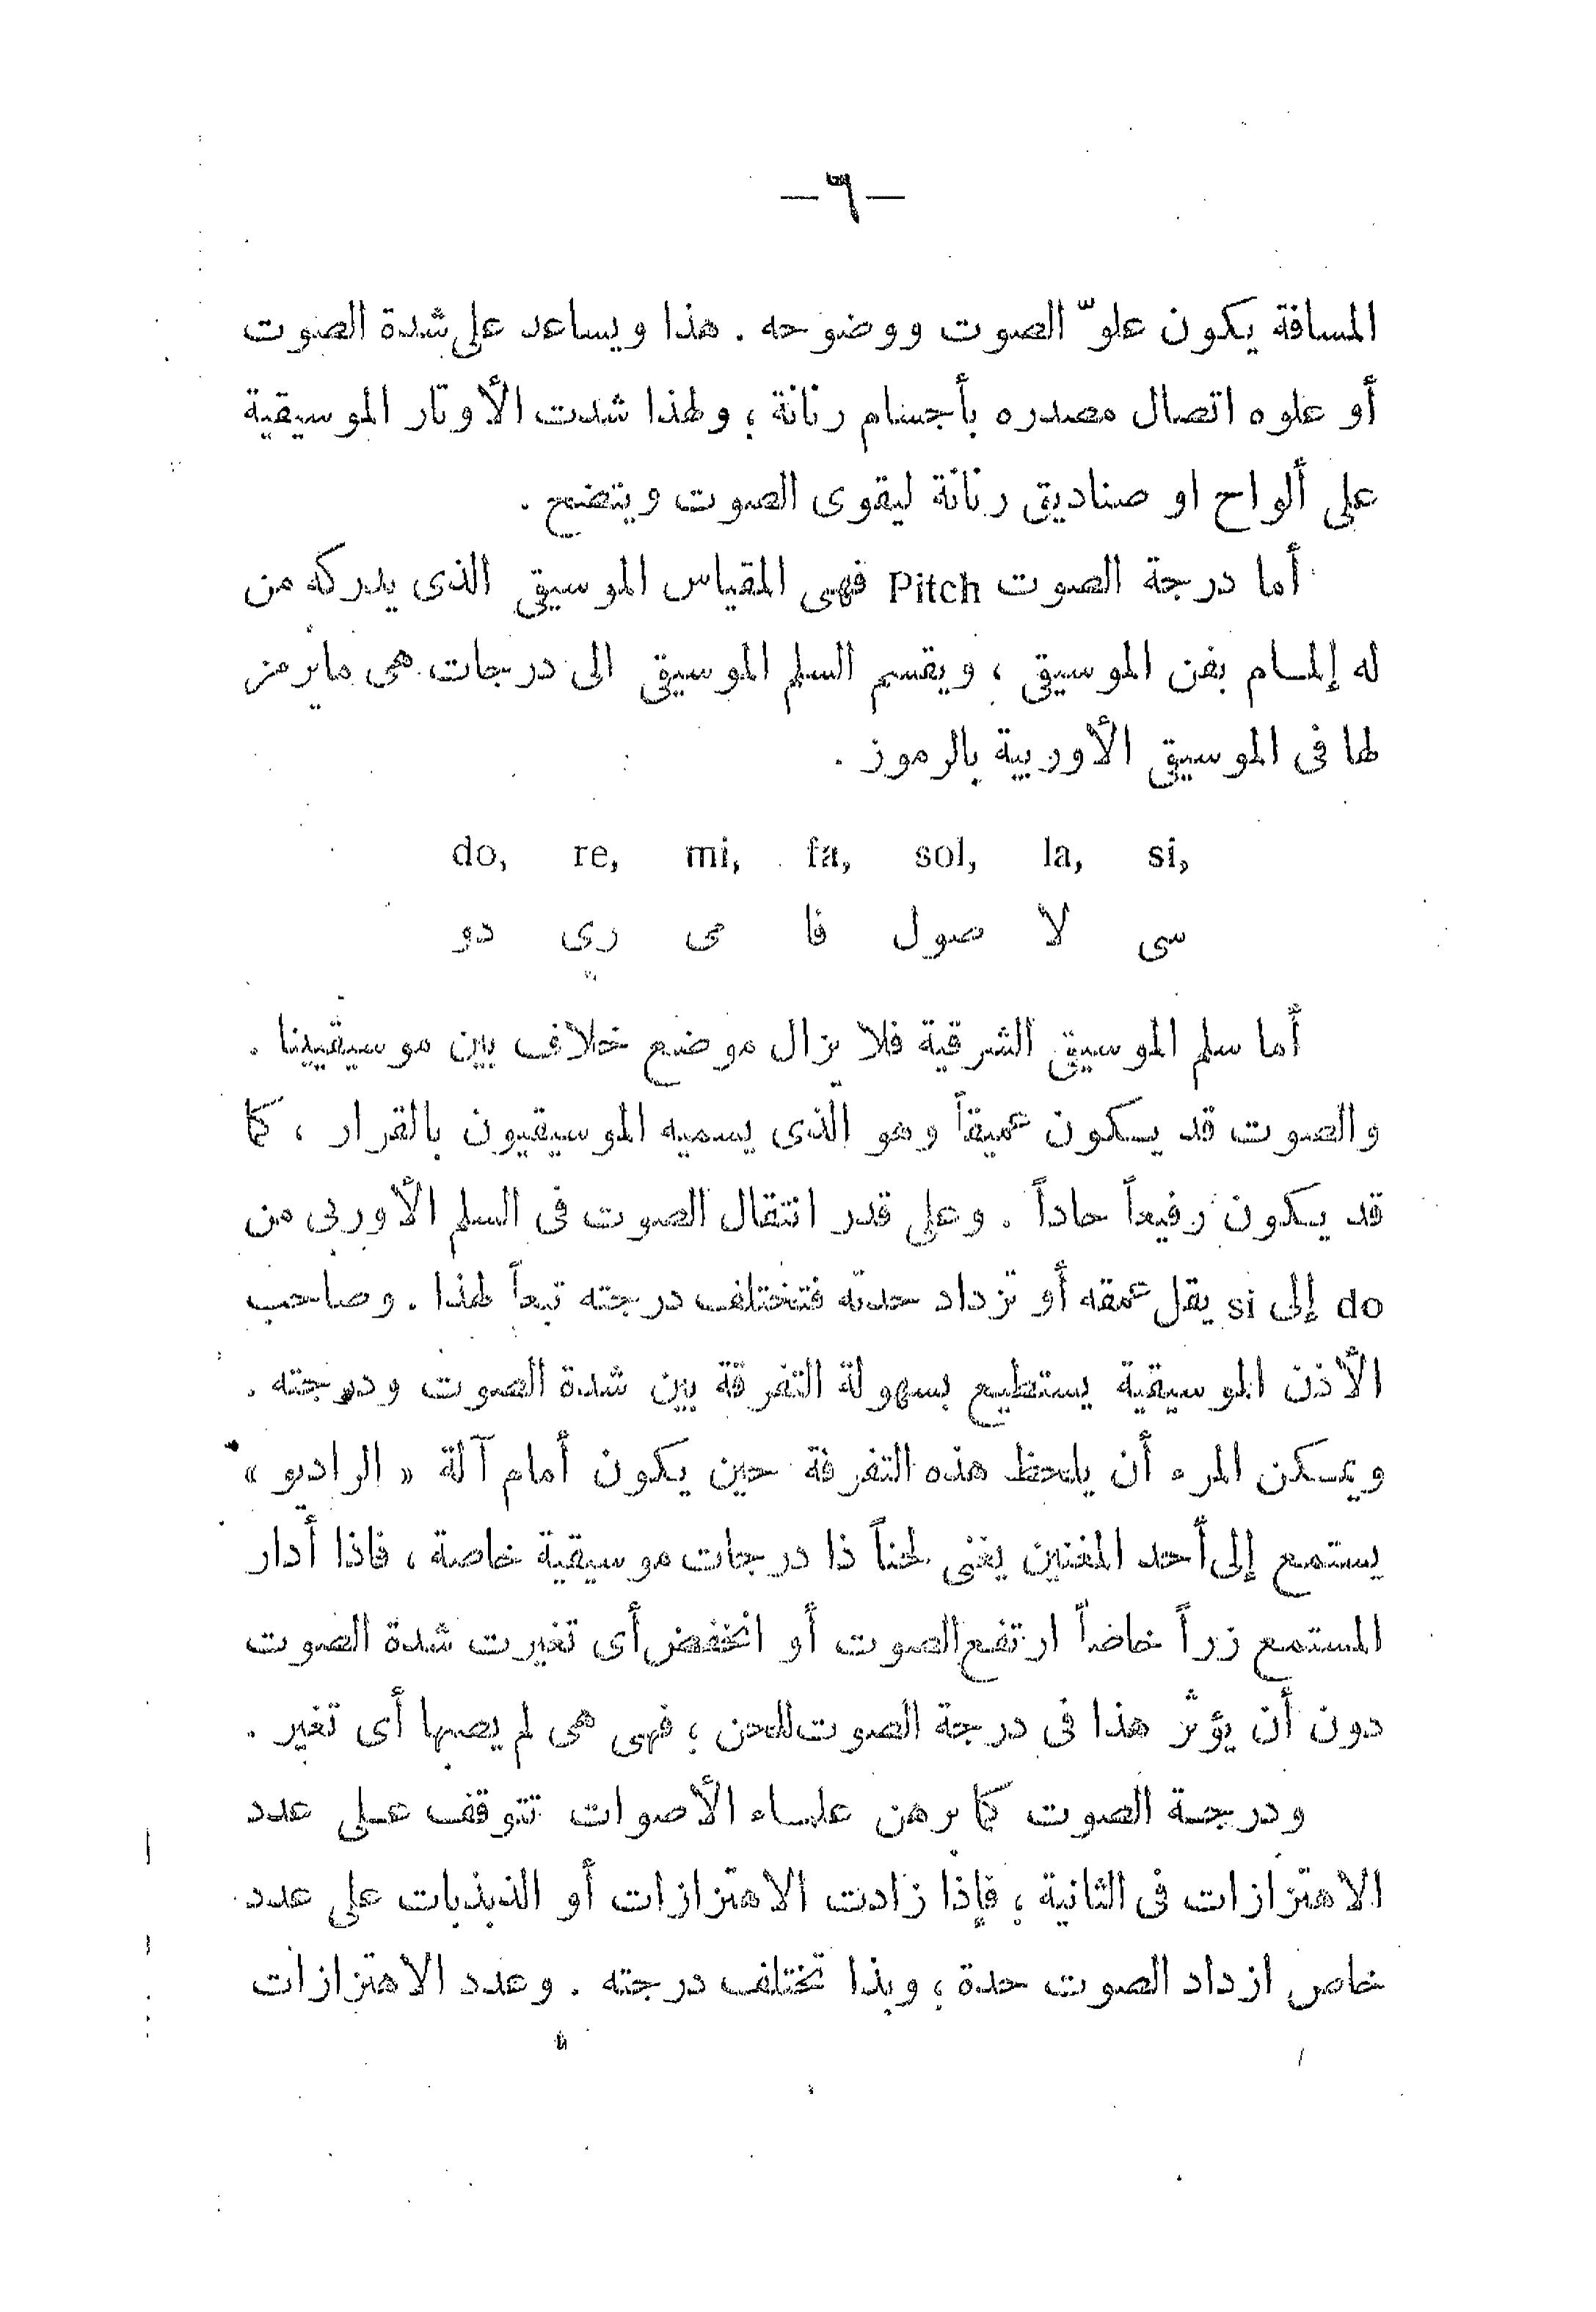 — ٦ —
المسافة يكون علوّ الصوت ووضوحه . هذا ويساعد على شدة الصوت
أو علوه اتصال مصدره بأجسام رنانة ؛ ولهذا شدت الأوتار الموسيقية
على ألواح او صناديق رنانة ليقوى الصوت ويتضح .
أما درجة الصوت Pitch فهى المقياس الموسيقى الذى يدركه من
له إلمام بفن الموسيقى ، ويقسم السلم الموسيقى الى درجات هى مايرمز
لها فى الموسيقى الأوربية بالرموز .
do, re, mi, fa, sol, la, si,
سى لا صول فا مى رى دو
أما سلم الموسيقى الشرقية فلا يزال موضع خلاف بين موسيقيينا .
والصوت قد يكون عميقاً وهو الذى يسميه الموسيقيون بالقرار ، كما
قد يكون رفيعاً حاداً . وعلى قدر انتقال الصوت فى السلم الأوربى من
do إلى si يقل عمقه أو تزداد حدته فتختلف درجته تبعاً لهذا . وصاحب
الأذن الموسيقية يستطيع بسهولة التفرقة بين شدة الصوت ودرجته .
ويمكن المرء أن يلحظ هذه التفرقة حين يكون أمام آلة « الراديو »
يستمع إلى أحد المغنين يغنى لحناً ذا درجات موسيقية خاصة ، فاذا أدار
المستمع زراً خاصاً ارتفع الصوت أو انخفض أى تغيرت شدة الصوت
دون أن يؤثر هذا فى درجة الصوت للحن ؛ فهى هى لم يصبها أى تغير .
ودرجة الصوت كما برهن علماء الأصوات تتوقف على عدد
الاهتزازات فى الثانية ؛ فإذا زادت الاهتزازات أو الذبذبات على عدد
خاص ازداد الصوت حدة ؛ وبذا تختلف درجته . وعدد الاهتزازات